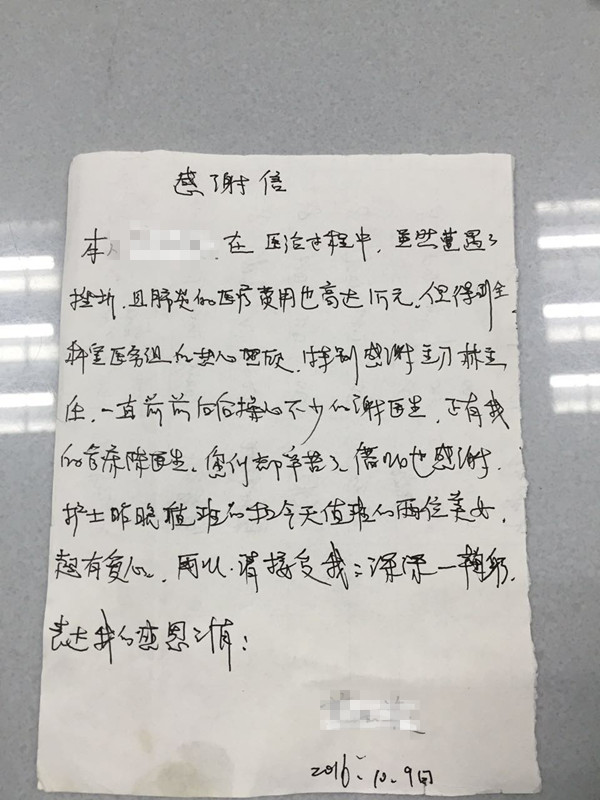 感谢信
本人 在医治过程中,虽然遭遇了
挫折,且肺炎的医疗费用也高达1万元,但得到全
科室医务组的热心照顾,特别感谢主刀林主
任,一直前前后后操心不少的谢医生,还有我
的管床陈医生,您们都辛苦了,借此也感谢
护士昨晚值班的和今天值班的两位美女,
超有爱心,所以,请接受我:深深一鞠躬,
表达我的感恩之情:
2016.10.9日